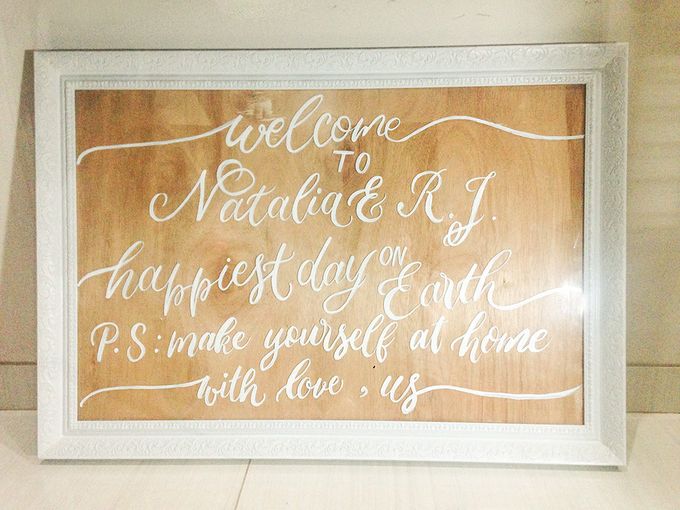 welcome
TO
Natalia & R.J.
happiest day ON Earth
P.S: make yourself at home
with love, us